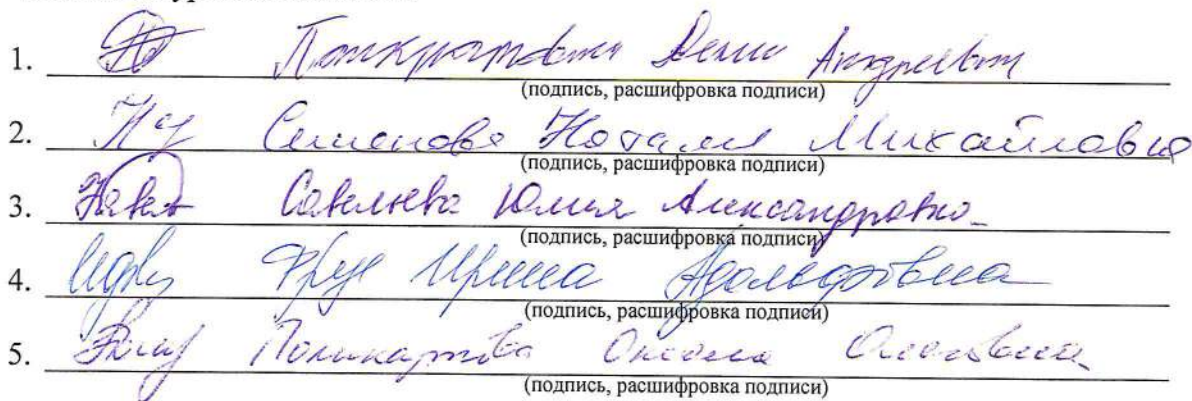 1. Панкратов Денис Андреевич
(подпись, расшифровка подписи)
2. Семенова Наталия Михайловна
(подпись, расшифровка подписи)
3. Савельева Юлия Александровна
(подпись, расшифровка подписи)
4. Ирина Адольфовна
(подпись, расшифровка подписи)
5. Поликарпова Оксана
(подпись, расшифровка подписи)